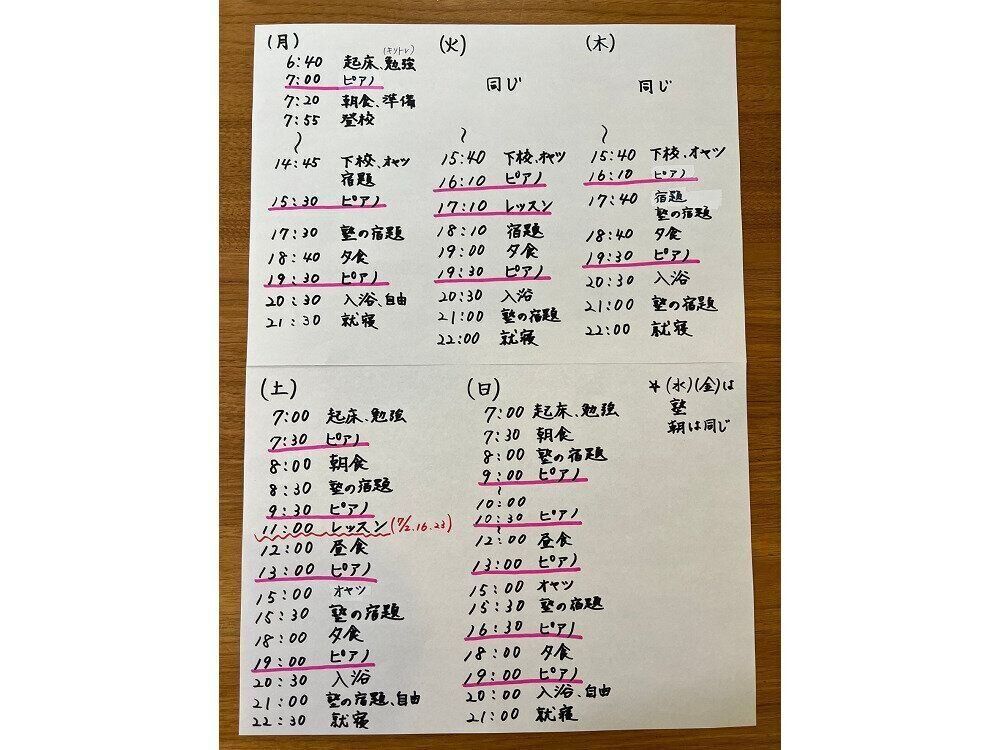 (月)
(キットレ)
6:40 起床、勉強
7:00 ピアノ
7:20 朝食、準備
7:55 登校
〜
14:45 下校、オヤツ
宿題
15:30 ピアノ
17:30 塾の宿題
18:40 夕食
19:30 ピアノ
20:30 入浴、自由
21:30 就寝
(火)
同じ
〜
15:40 下校、オヤツ
16:10 ピアノ
17:10 レッスン
18:10 宿題
19:00 夕食
19:30 ピアノ
20:30 入浴
21:00 塾の宿題
22:00 就寝
(木)
同じ
〜
15:40 下校、オヤツ
16:10 ピアノ
17:40 宿題
塾の宿題
18:40 夕食
19:30 ピアノ
20:30 入浴
21:00 塾の宿題
22:00 就寝
(土)
7:00 起床、勉強
7:30 ピアノ
8:00 朝食
8:30 塾の宿題
9:30 ピアノ
11:00 レッスン(7/2.16.23)
12:00 昼食
13:00 ピアノ
15:00 オヤツ
15:30 塾の宿題
18:00 夕食
19:00 ピアノ
20:30 入浴
21:00 塾の宿題、自由
22:30 就寝
(日)
7:00 起床、勉強
7:30 朝食
8:00 塾の宿題
9:00 ピアノ
〜
10:00
10:30 ピアノ
〜
12:00 昼食
13:00 ピアノ
15:00 オヤツ
15:30 塾の宿題
16:30 ピアノ
18:00 夕食
19:00 ピアノ
20:00 入浴、自由
21:00 就寝
*(水)(金)は
塾
朝は同じ